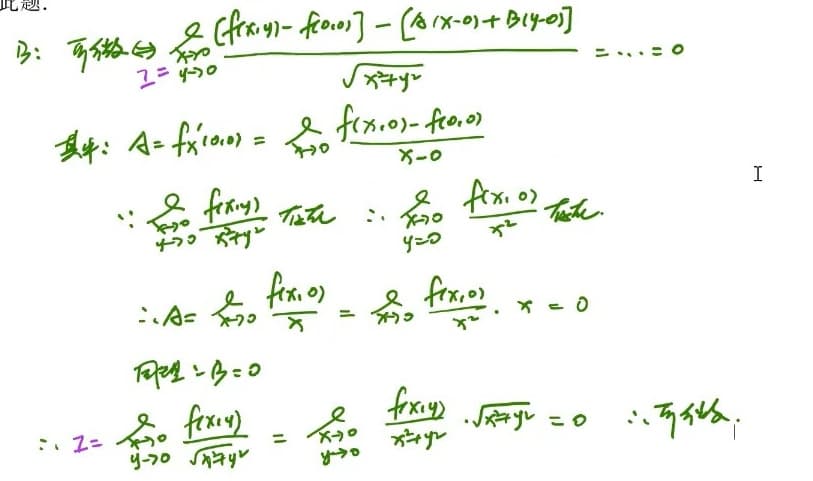 此题.
B: 可微⇔ I= lim_{x→0, y→0} {[f(x,y)-f(0,0)] - [A(x-0)+B(y-0)]}/√(x²+y²) = … = 0
其中: A = fx'(0,0) = lim_{x→0} (f(x,0)-f(0,0))/(x-0)
∵ lim_{x→0, y→0} f(x,y)/(x²+y²) 存在 ∴ lim_{x→0, y=0} f(x,0)/x² 存在.
∴ A = lim_{x→0} f(x,0)/x = lim_{x→0} f(x,0)/x² · x = 0
同理: B=0
∴ I= lim_{x→0, y→0} f(x,y)/√(x²+y²) = lim_{x→0, y→0} f(x,y)/(x²+y²) · √(x²+y²) = 0 ∴ 可微.